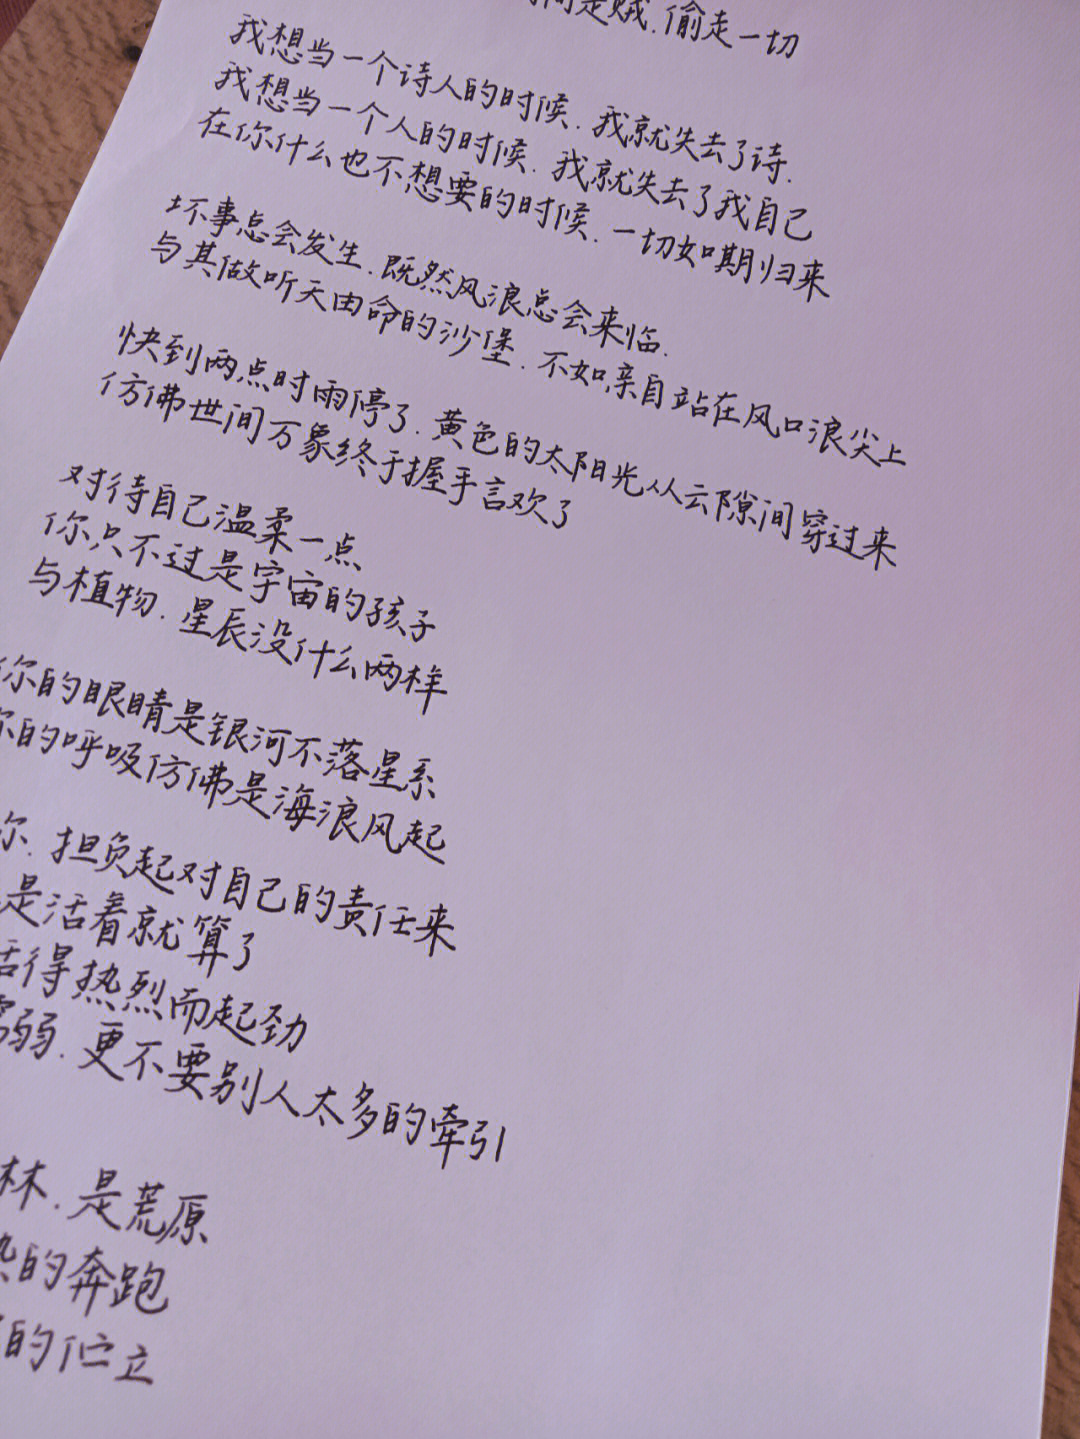 间是贼.偷走一切
我想当一个诗人的时候.我就失去了诗.
我想当一个人的时候.我就失去了我自己
在你什么也不想要的时候.一切如期归来
坏事总会发生.既然风浪总会来临.
与其做听天由命的沙堡.不如亲自站在风口浪尖上
快到两点时雨停了.黄色的太阳光从云隙间穿过来
仿佛世间万象终于握手言欢了
对待自己温柔一点
你只不过是宇宙的孩子
与植物.星辰没什么两样
你的眼睛是银河不落星系
你的呼吸仿佛是海浪风起
你.担负起对自己的责任来
是活着就算了
活得热烈而起劲
弱.更不要别人太多的牵引
林.是荒原
的奔跑
的伫立